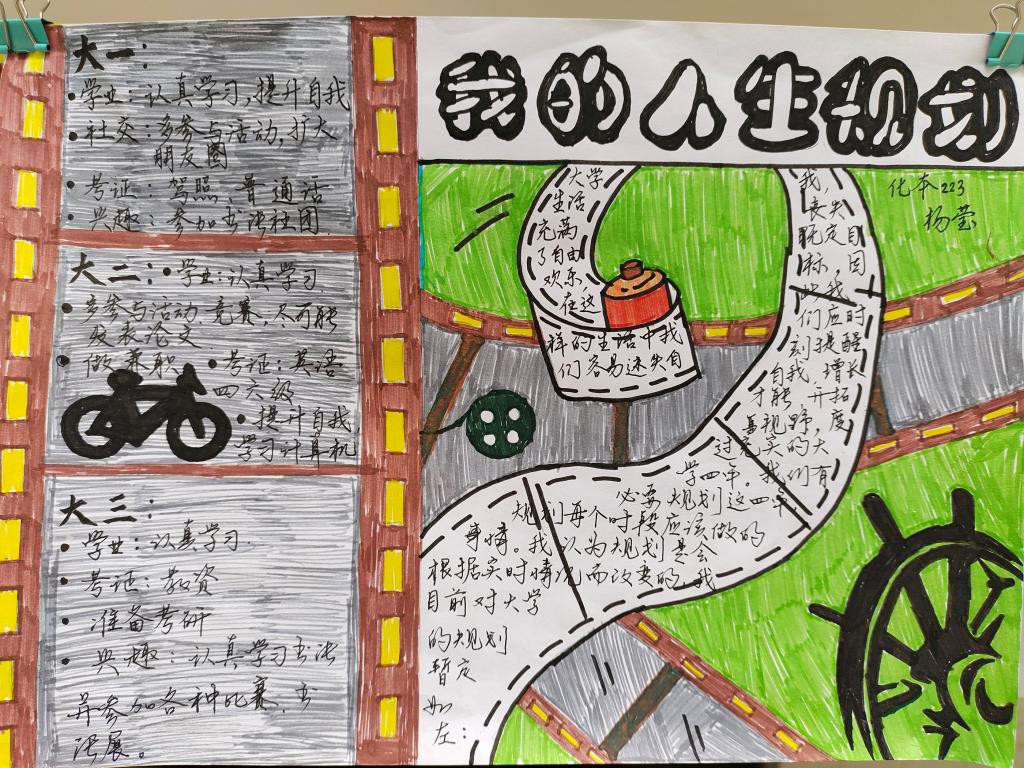 我的人生规划
化本223
杨莹
大学
生活
充满
了自由
欢乐,
在这
样的生活中我
们容易迷失自
我,
丧失
既定目
标,因
此我
们应时
刻提醒
自我,增长
才能,开拓
视野,度
过充实的大
学四年。我们有
必要规划这四年
规划每个时段应该做的
事情。我认为规划是会
根据实时情况而改变的,我
目前对大学
的规划
暂定
如
左:
大一:
•学业:认真学习,提升自我
•社交:多参与活动,扩大
朋友圈
•考证:驾照,普通话
•兴趣:参加书法社团.
大二:•学业:认真学习
•多参与活动、竞赛,尽可能
发表论文
•做兼职 •考证:英语
四六级
•提升自我,
学习计算机
大三:
•学业:认真学习.
•考证:教资
•准备考研
•兴趣:认真学习书法
并参加各种比赛、书
法展。